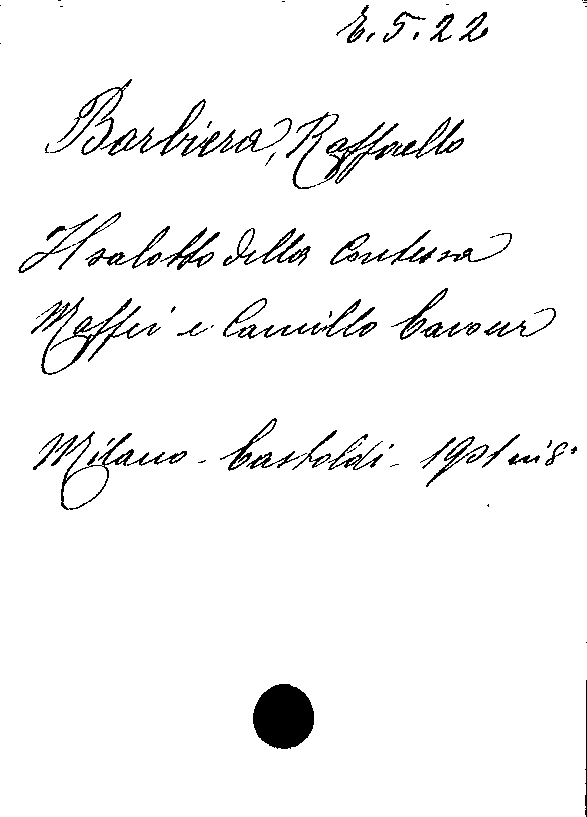 E.5.22
Barbiera, Raffaello
Il salotto della Contessa
Maffei e Camillo Cavour
Milano - Castoldi - 1901 in 8°